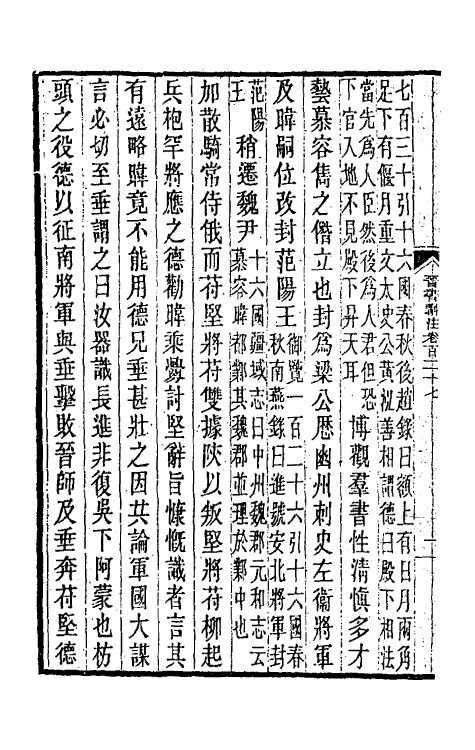 七百三十引十六國春秋後趙錄曰額上有日月兩角
足下有偃月重文太史公黃泓善相謂德曰殿下相法
當先為人臣然後為人君但恐
下官入地不見殿下昇天耳
博觀羣書性清慎多才
藝慕容儁之僭立也封為梁公歷幽州刺史左衞將軍
及暐嗣位改封范陽王
御覽一百二十六引十六國春
秋南燕錄曰進號安北將軍封
范陽
王
稍遷魏尹
十六國疆域志曰中州魏郡元和志云
慕容暐都鄴其魏郡並理於鄴中也
加散騎常侍俄而苻堅將苻雙據陝以叛堅將苻柳起
兵枹罕將應之德勸暐乘釁討堅辭旨慷慨識者言其
有遠略暐竟不能用德兄垂甚壯之因共論軍國大謀
言必切至垂謂之曰汝器識長進非復吳下阿蒙也枋
頭之役德以征南將軍與垂擊敗晉師及垂奔苻堅德
晉書斠注卷百二十七